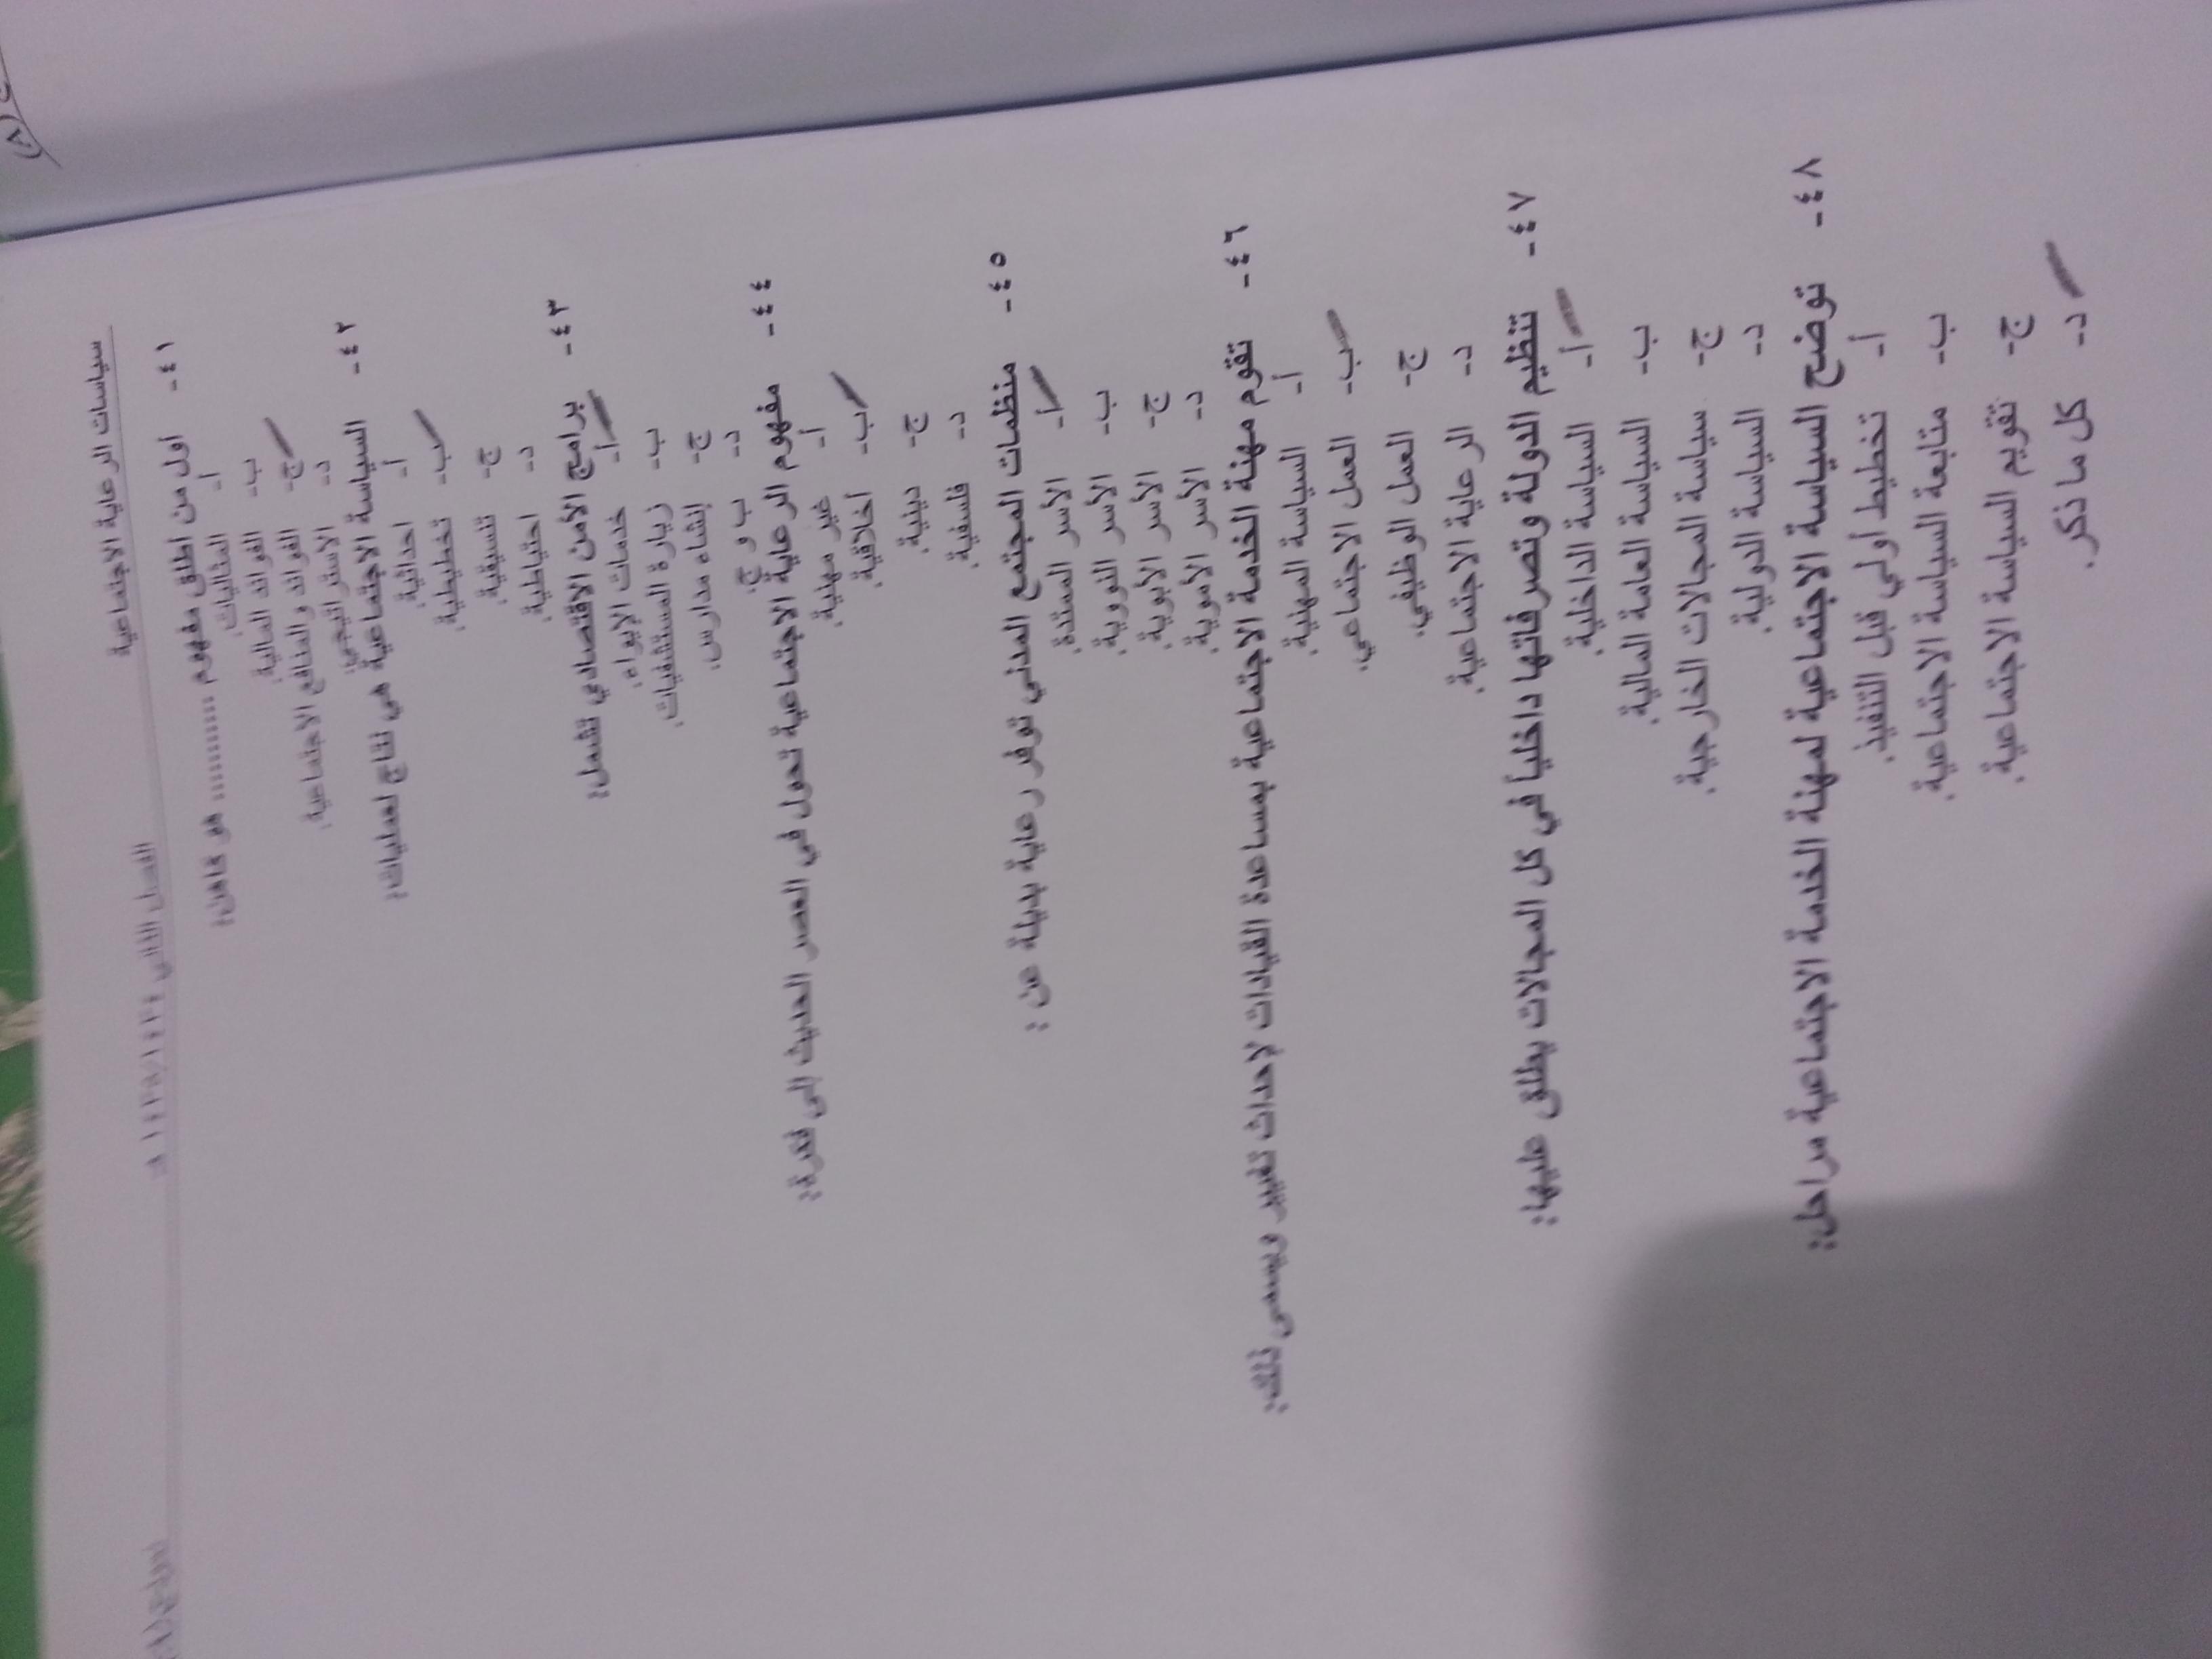 سياسات الرعاية الاجتماعية الفصل الثاني
٤١- أول من أطلق مفهوم .......... هو
أ- المثاليات.
ب- الفوائد المالية.
ج- الفوائد والمنافع الاجتماعية.
د- الاستراتيجية.
٤٢- السياسة الاجتماعية هي نتاج لعمليات:
أ- احداثية.
ب- تخطيطية.
ج- تنسيقية.
د- احتياطية.
٤٣- برامج الأمن الاقتصادي تشمل:
أ- خدمات الإيواء.
ب- زيارة المستشفيات.
ج- إنشاء مدارس.
د- ب و ج.
٤٤- مفهوم الرعاية الاجتماعية تحول في العصر الحديث إلى فكرة:
أ- غير مهنية.
ب- أخلاقية.
ج- دينية.
د- فلسفية.
٤٥- منظمات المجتمع المدني توفر رعاية بديلة عن :
أ- الأسر الممتدة.
ب- الأسر النووية.
ج- الأسر الأبوية.
د- الأسر الأموية.
٤٦- تقوم مهنة الخدمة الاجتماعية بمساعدة القيادات لإحداث تغيير مجتمعي
أ- السياسة المهنية.
ب- العمل الاجتماعي.
ج- العمل الوظيفي.
د- الرعاية الاجتماعية.
٤٨- تنظيم الدولة وتصرفاتها داخلياً في كل المجالات يطلق عليها:
أ- السياسة الداخلية.
ب- السياسة العامة المالية.
ج- سياسة المجالات الخارجية.
د- السياسة الدولية.
٤٧- توضح السياسة الاجتماعية لمهنة الخدمة الاجتماعية مراحل:
أ- تخطيط أولي قبل التنفيذ.
ب- متابعة السياسة الاجتماعية.
ج- تقويم السياسة الاجتماعية.
د- كل ما ذكر.